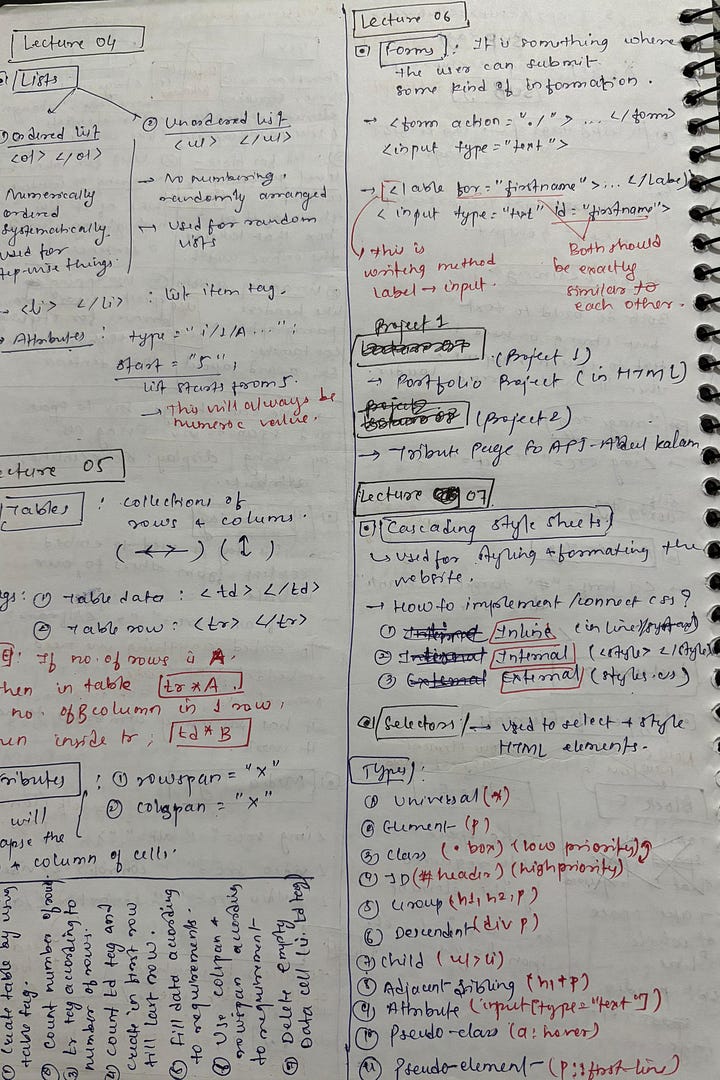 Lecture 04
Lists
ordered list
<ol> </ol>
Numerically
ordered
systematically.
used for
step-wise things.
② Unordered list
<ul> </ul>
→ No numbering,
randomly arranged
→ used for random
lists
→ <li> </li> : list item tag.
Attributes : type = "i/1/A...";
start = "5";
list starts from 5.
→ This will always be
numeric value.
Lecture 05
Tables : collections of
rows & colums.
(↔) (↕)
① Table data : <td> </td>
② Table row : <tr> </tr>
If no. of rows is A.
then in table tr*A.
no. of column in 1 row,
inside tr; td*B
① rowspan = "x"
② colspan = "x"
will
the
& column of cells.
① Create table by using
table tag.
② count number of row.
③ tr tag according to
number of rows.
④ count td tag and
create in first row
till last row.
⑤ Fill data acording
to requirements.
⑥ Use colspan &
rowspan acording
to requirement
⑦ Delete empty
Data cell (i.e. td tag)
Lecture 06
Forms : It is something where
the user can submit
some kind of information.
→ <form action = "./" > ... </form>
<input type = "text">
→ <lable for = "firstname">... </Label>
<input type = "text" id = "firstname">
→ This is
writing method
Label → input.
Both should
be exactly
similar to
each other.
Project 1
(Project 1)
→ Portfolio Project (in HTML)
Project
(Project 2)
→ Tribute Page fo APJ-Abdul kalam
Lecture 07
Cascading style sheets
↳ used for styling & formating the
website.
→ How to implement/connect css?
① Inline (in line)
② Internal (<style> </style>)
③ External (styles.css)
Selectors → used to select & style
HTML elements.
Types :
① Universal (*)
② Element (p)
③ Class (. box) (low priority)
④ ID (# header) (high priority)
⑤ Group (h1, h2, p)
⑥ Descendent (div p)
⑦ Child (ul>li)
⑧ Adjacent sibling (h1+p)
⑨ Attribute (input[type="text"])
⑩ Pseudo-class (a:hover)
⑪ Pseudo-element (p::first-line)